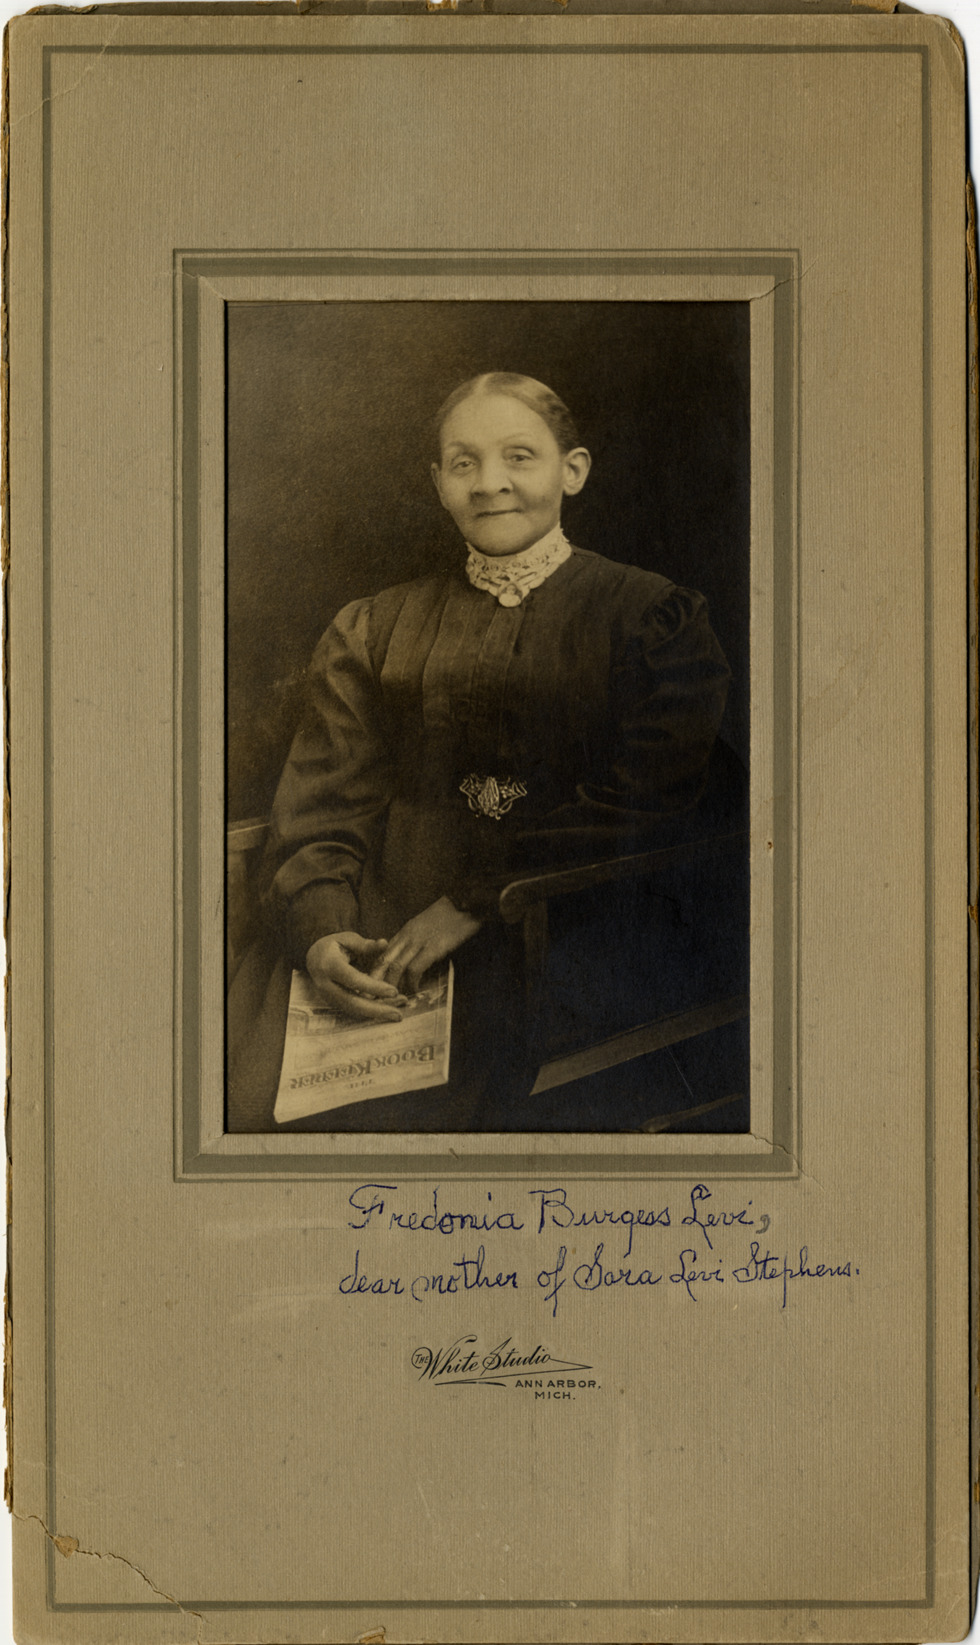 THE
BOOKKEEPER
Fredonia Burgess Levi,
dear mother of Sara Levi Stephens.
THE White Studio
ANN ARBOR,
MICH.